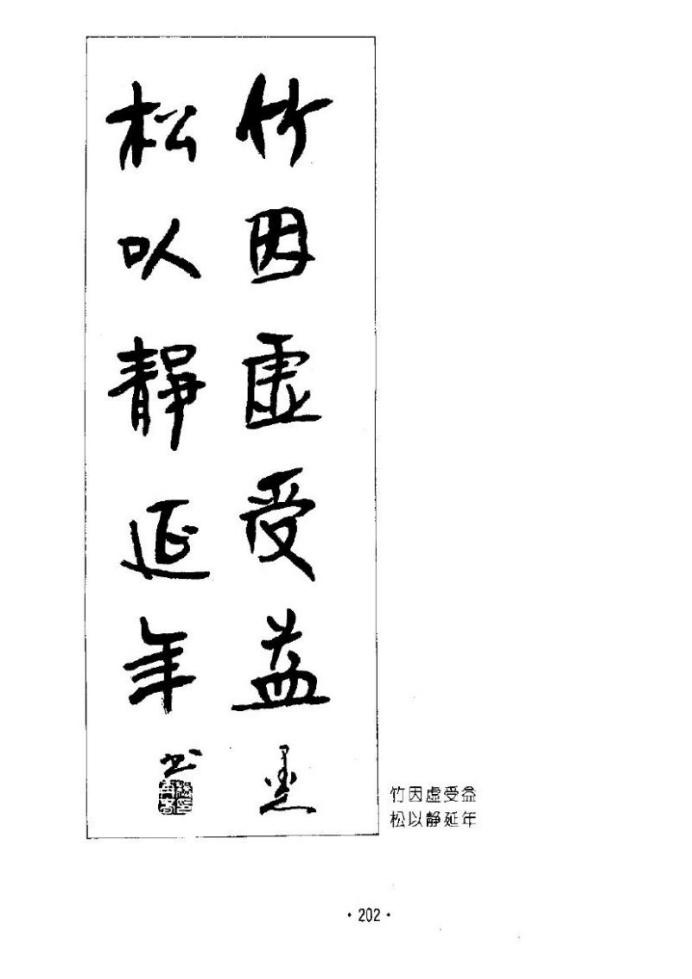 竹因虚受益
松以静延年
书
竹因虚受益
松以静延年
·202·